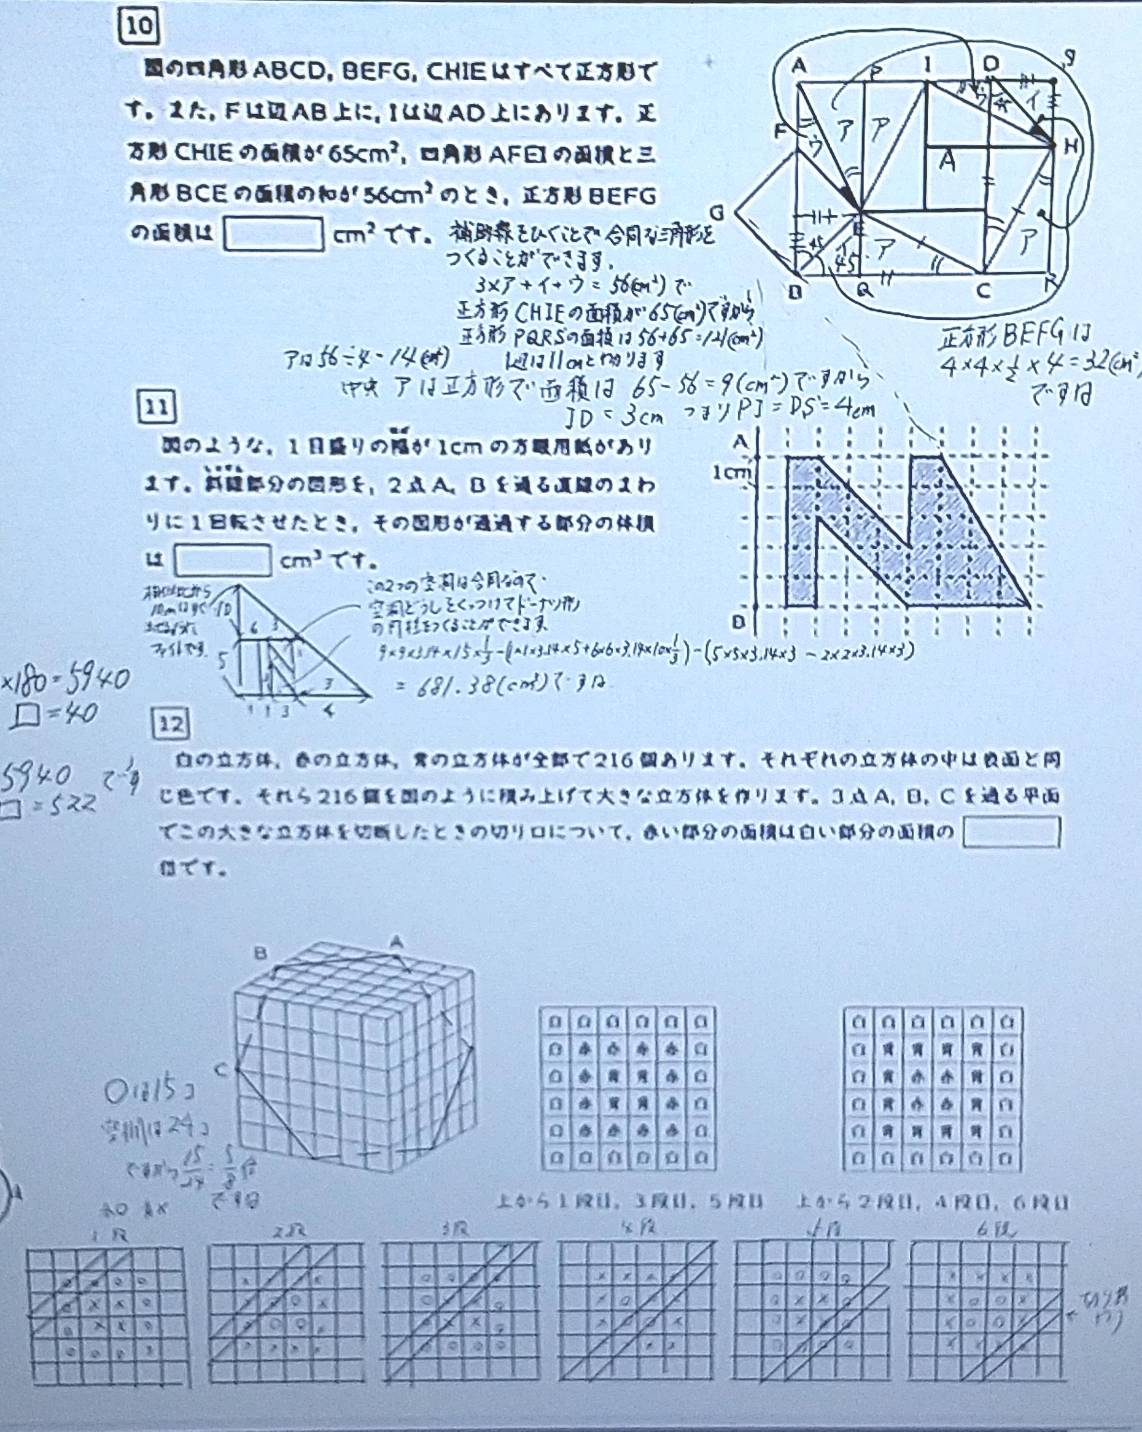 10
図の四角形ABCD，BEFG，CHIEはすべて正方形で
す。また，Fは辺AB上に，Iは辺AD上にあります。正
方形CHIEの面積が65cm²，四角形AFEIの面積と三
角形BCEの面積の和が56cm²のとき，正方形BEFG
の面積は cm²です。
補助線をひくことで合同な三角形を
つくることができます。
3×ア+イ+ウ=56(cm²)で
正方形CHIEの面積が65(cm²)ですから
正方形PQRSの面積は56+65=121(cm²)
1辺は11cmとわかります
アは56÷4=14(cm²)
中央 アは正方形で面積は 65-56=9(cm²)ですから
ID=3cm つまりPI=DS=4cm
正方形BEFGは
4×4×1/2×4=32(cm²)
ですね
A P I D
F H
A
G E
B Q C R
ア ア
ウ イ
ア ア
45
11
図のような，1目盛りの幅が1cmの方眼用紙があり
ます。斜線部分の図形を，2点A，Bを通る直線のまわ
りに1回転させたとき，その図形が通過する部分の体積
は cm³です。
A
1cm
B
この2つの空洞は合同なので
空洞どうしをくっつけてドーナツ形
の円柱をつくることができます
9×9×3.14×15×1/3-(1×1×3.14×5+6×6×3.14×10×1/3)-(5×5×3.14×3-2×2×3.14×3)
=681.38(cm³)ですね
10
6 3
5
3
1 1 3 4
×180=5940
□=40
5940 です
□=522
12
白の立方体，赤の立方体，青の立方体が全部で216個あります。それぞれの立方体の中は表面と同
じ色です。それら216個を図のように積み上げて大きな立方体を作ります。3点A，B，Cを通る平面
でこの大きな立方体を切断したときの切り口について，赤い部分の面積は白い部分の面積の
倍です。
B A
C
白 白 白 白 白 白
白 赤 赤 赤 赤 白
白 赤 青 青 赤 白
白 赤 青 青 赤 白
白 赤 赤 赤 赤 白
白 白 白 白 白 白
白 白 白 白 白 白
白 青 青 青 青 白
白 青 赤 赤 青 白
白 青 赤 赤 青 白
白 青 青 青 青 白
白 白 白 白 白 白
上から1段目，3段目，5段目
上から2段目，4段目，6段目
○は15コ
空欄は24コ
ですから15/24=5/8倍
ですね
赤○ 青×
1段 2段 3段 4段 5段 6段